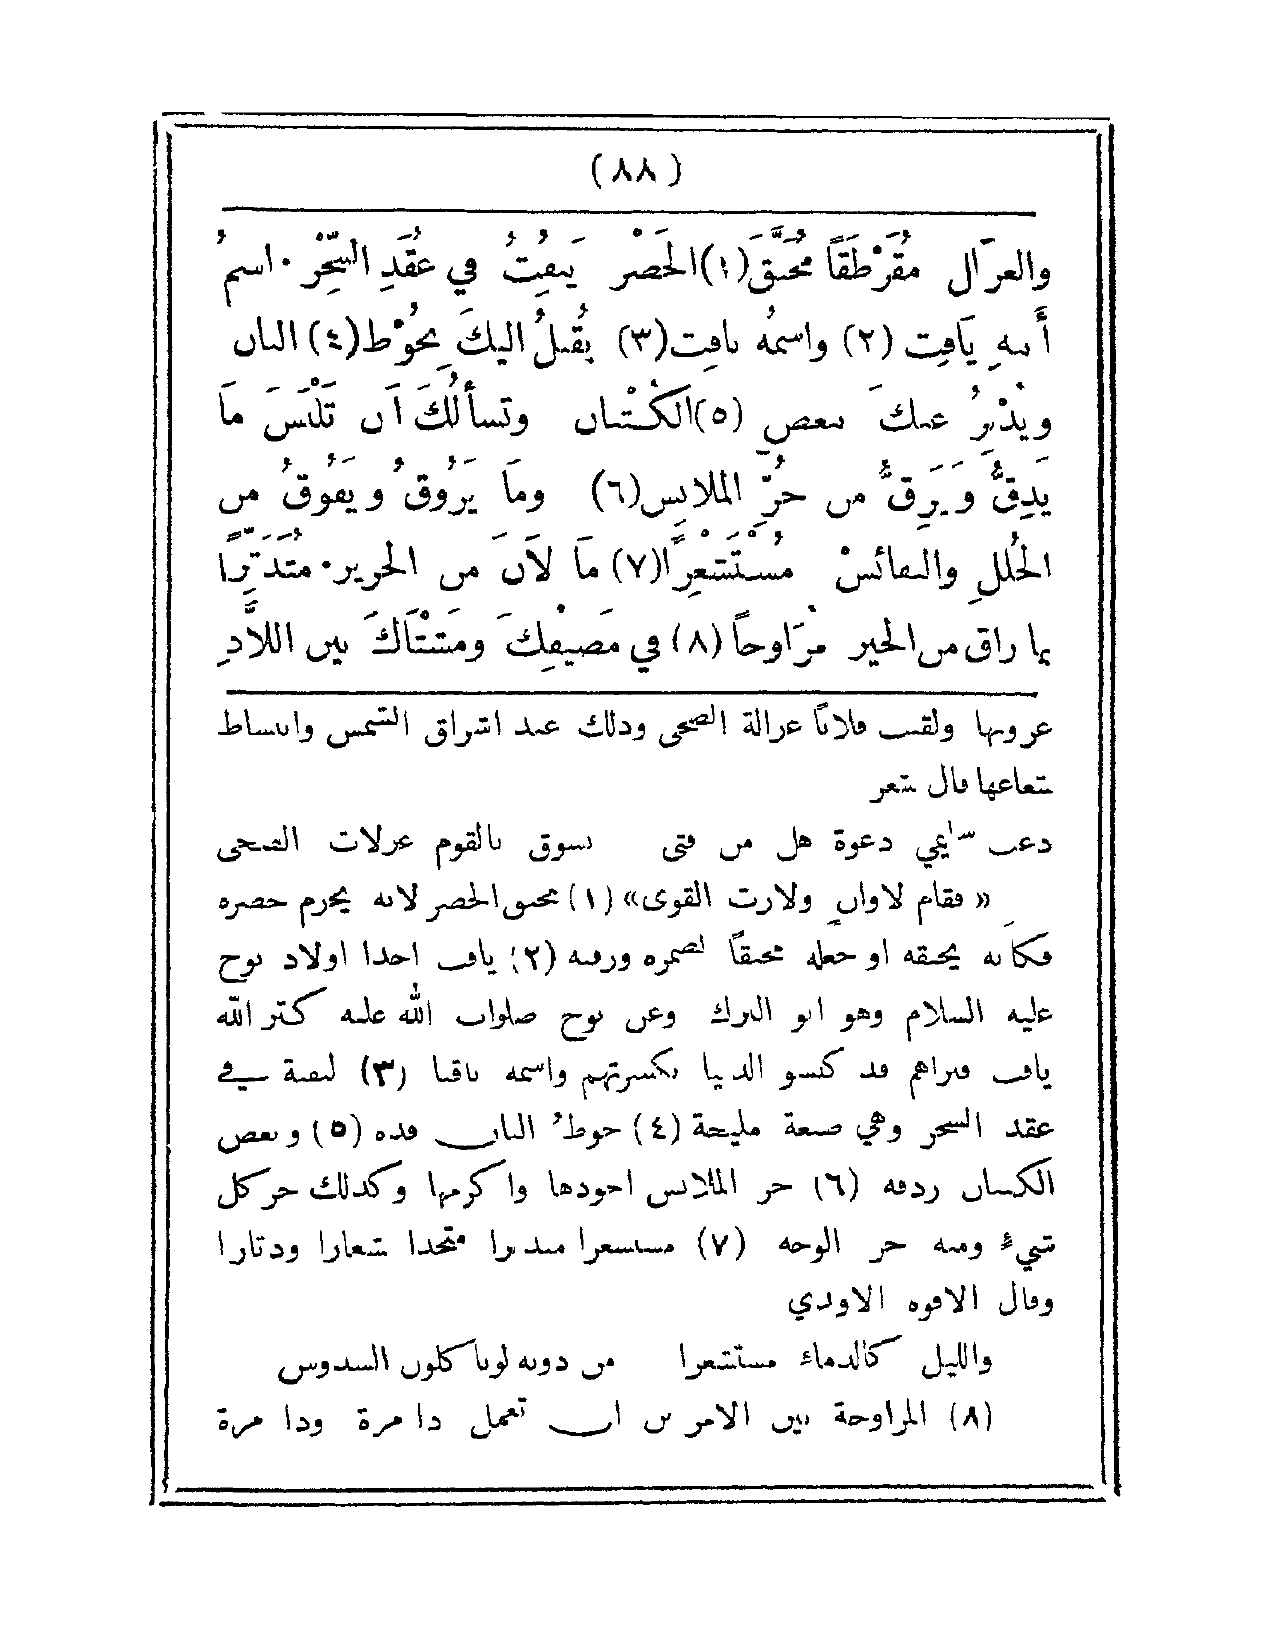 (٨٨)
والغزال مُقَرْطَقًا مُخَنَّقَ(١) الخَصْرِ يَنفِثُ في عُقَدِ السِّحْرِ · اسمُ
أبيهِ يَافِث (٢) واسمُه نافِث(٣) يُقبِلُ اليكَ بِخُوْطِ(٤) البان
ويُدْبِرُ عنكَ بدعص (٥)الكُثْبان وتسألُكَ أن تَلْبَسَ مَا
يَدِقُّ وَيَرِقُّ من حُرِّ الملابِس(٦) ومَا يَرُوقُ ويَفُوقُ من
الحُللِ والنفائسْ مُسْتَشْعِرًا(٧) مَا لاَنَ من الحرير· متَدَثِّرًا
بما راق من الحبير مُرَاوِحاً (٨) في مَصِيفِكَ ومَشْتَاكَ بين اللاَّذِ
غروبها ولقيت فلاناً غزالة الضحى وذلك عند اشراق الشمس وانبساط
شعاعها قال شعر
دعت سليمي دعوة هل من فتى يسوق بالقوم غزلات الضحى
« فقام لاوان ولارت القوى» (١) مخنق الخصر لانه يخرم خصره
فكأنه يخنقه او جعله مخنقاً لضمره ورقته (٢) يافث احد اولاد نوح
عليه السلام وهو ابو الترك وعن نوح صلوات الله عليه كثر الله
يافث فتراهم قد كبسو الدنيا بكثرتهم واسمه نافثا (٣) لنفثه في
عقد السحر وهي صنعة مليحة (٤) خوط البان قده (٥) ودعص
الكثبان ردفه (٦) حر الملابس اجودها واكرمها وكذلك حر كل
شيء ومنه حر الوجه (٧) مستشعرا متدثرا متخذا شعارا ودثارا
وقال الافوه الاودي
والليل كالدماء مستشعرا من دونه لونا كلون السدوس
(٨) المراوحة بين الامرين ان تعمل ذا مرة وذا مرة